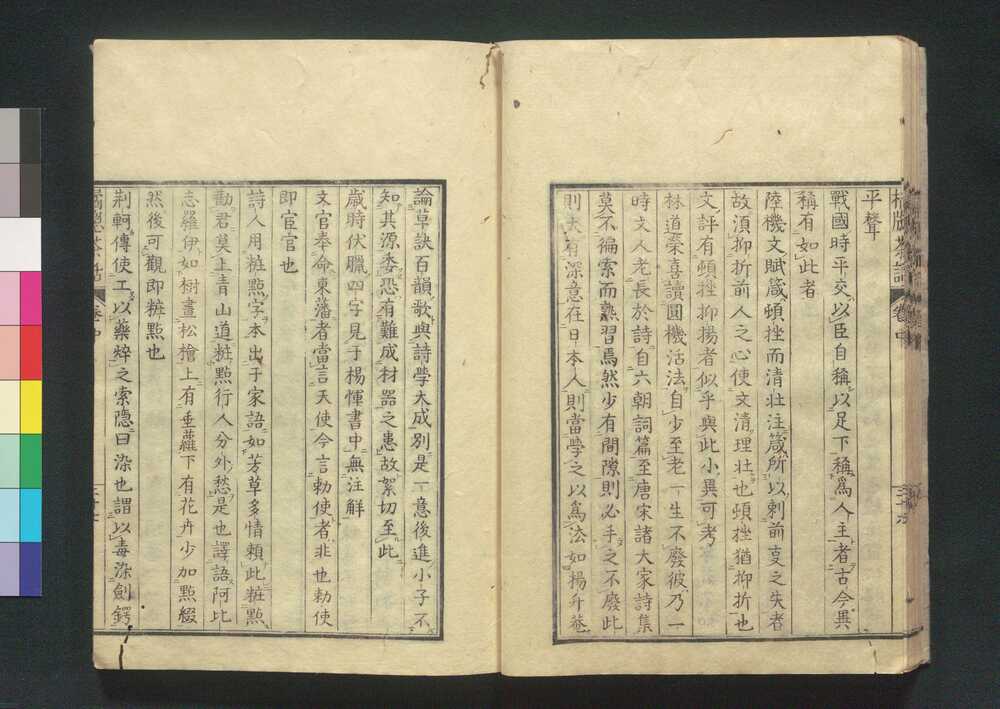 平聲
戰國時平交以臣自稱以足下稱爲人主者古今異
稱有如此者
陸機文賦箴頓挫而清壯注箴所以刺前事之失者
故須抑折前人之心使文清理壯也頓挫猶抑折也
文評有頓挫抑揚者似乎與此小異可考
林道榮喜讀圓機活法自少至老一生不廢彼乃一
時文人老長於詩自六朝詞篇至唐宋諸大家詩集
莫不徧索而熟習焉然少有間隙則必手之不廢此
則大有深意在日本人則當學之以爲法如楊升菴
論草訣百韻歌與詩學大成別是一意後進小子不
知其源委恐有難成材器之患故絮切至此
歳時伏臘四字見于楊惲書中無注解
文官奉命東藩者當言天使今言勅使者非也勅使
即宦官也
詩人用粧點字本出于家語如芳草多情賴此粧點
勸君莫上青山道粧點行人分外愁是也譯語阿比
志羅伊如樹畫松檜上有垂蘿下有花卉少加點綴
然後可觀即粧點也
荆軻傳使工以藥焠之索隠曰染也謂以毒染劍鍔
茶話
卷中